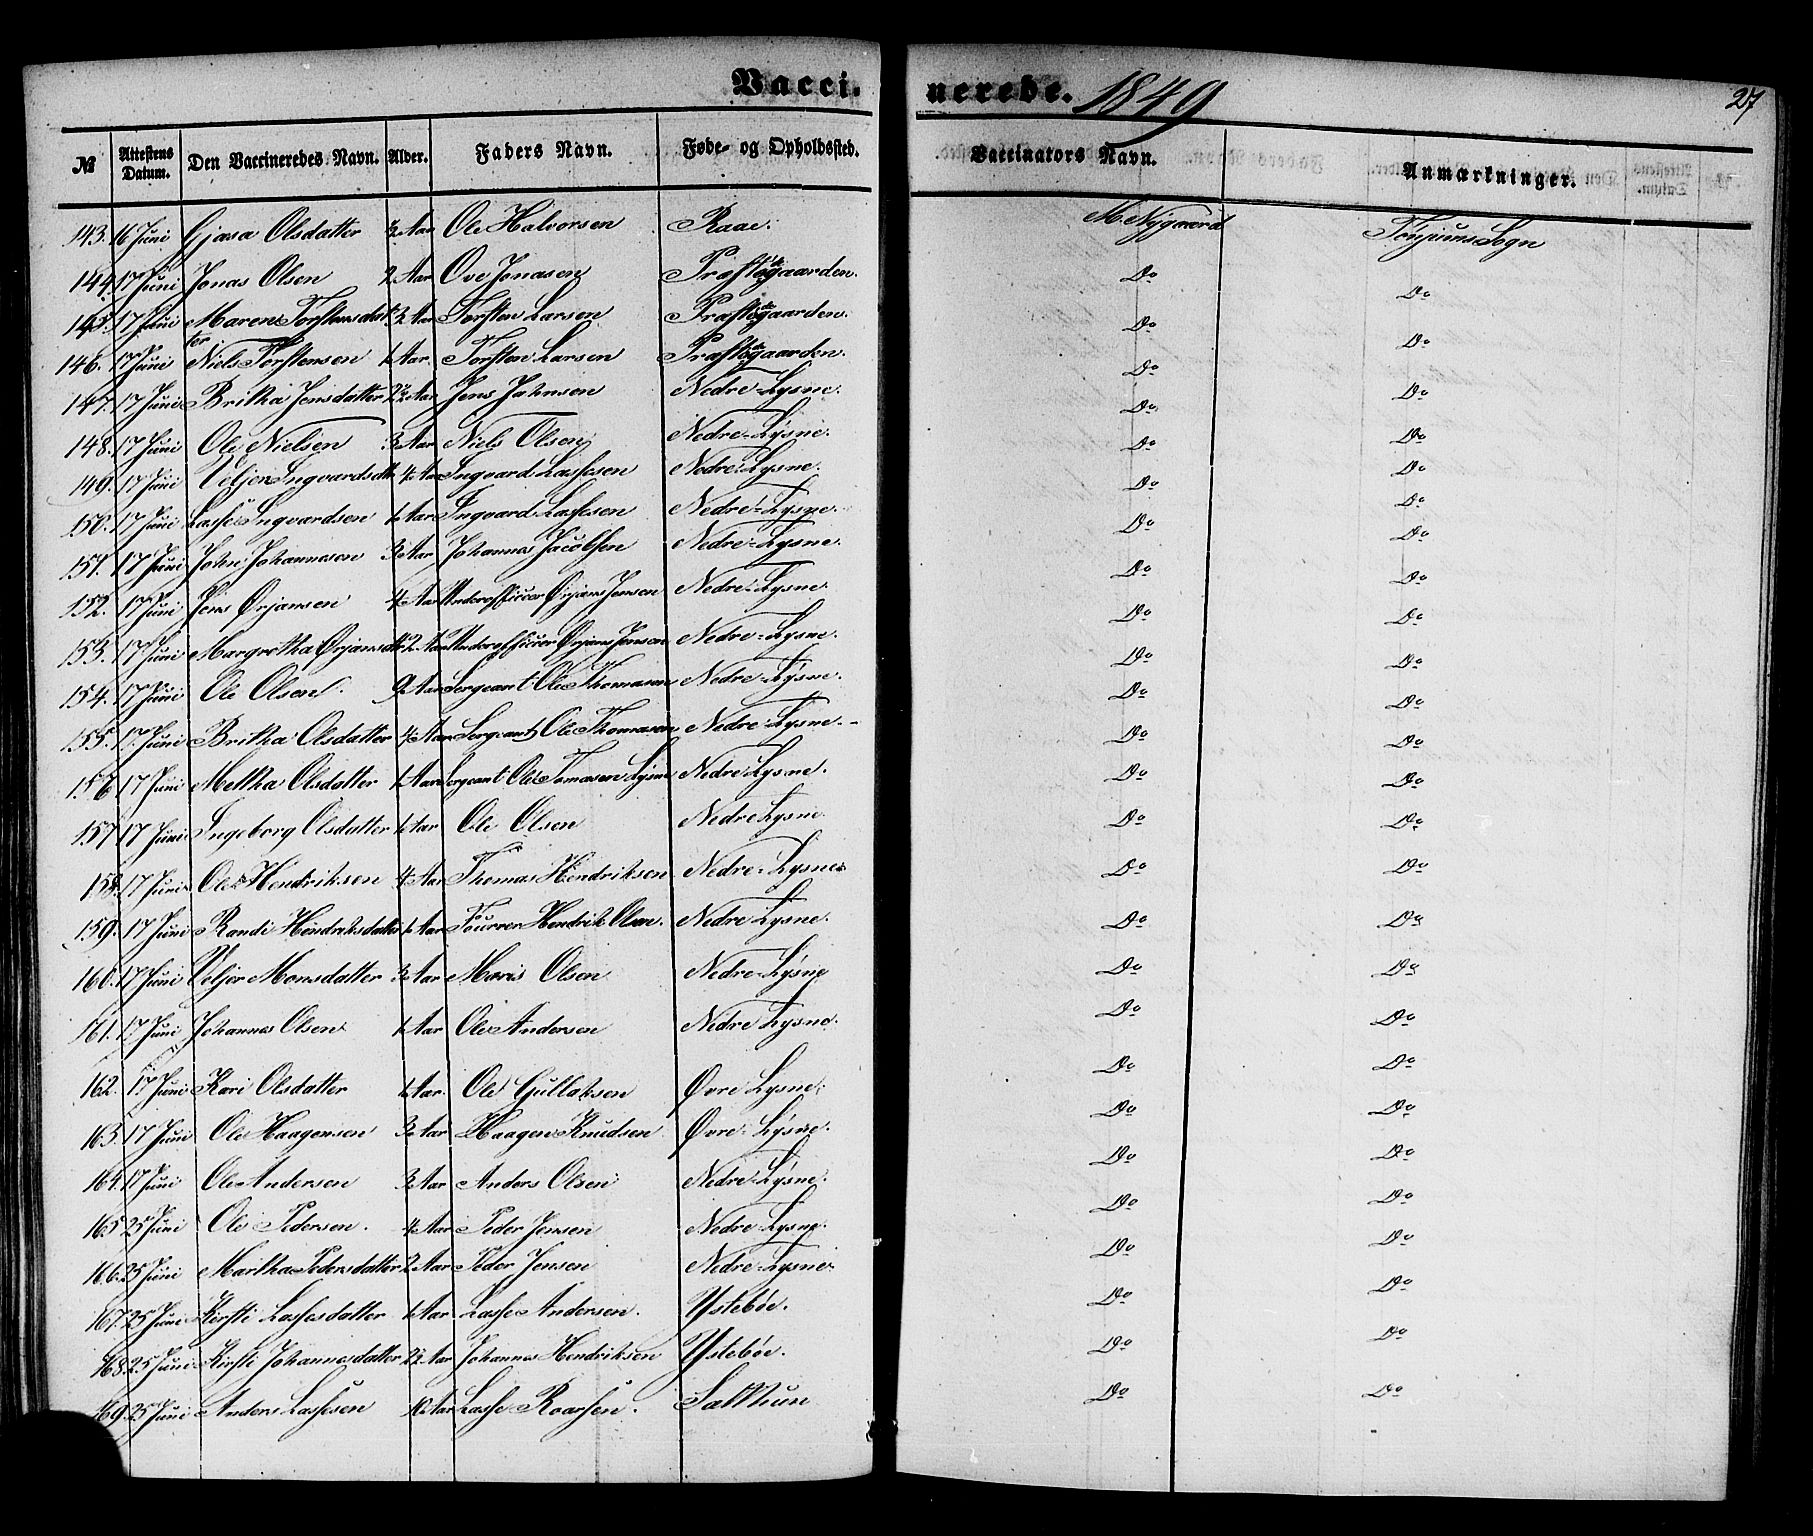 Vacci. nerede. 1849 27
№ Attestens Datum. Den Vaccineredes Navn. Alder. Faders Navn. Føde- og Opholdssted. Vaccinators Navn. Anmærkninger.
143. 16 Juni Gjasa Olsdatter 3 Aar Ole Halvorsen Raae. M Nygaard Tønjums Sogn
144. 17 Juni Jonas Olsen 2 Aar Ove Jonasen Præstegaarden. Do Do
145. 17 Juni Maren Torstensdatter 3 Aar Torsten Larsen Præstegaarden. Do Do
146. 17 Juni Niels Torstensen 1 Aar. Torsten Larsen Præstegaarden. Do Do
147. 17 Juni Britha Jensdatter Aar Jens Nedre-Lysne. Do Do
148. 17 Juni Ole Nielsen 3 Aar Niels Olsen Nedre-Lysne. Do Do
149. 17 Juni Ingvardsdtr Aar Ingvard Lassesen Nedre-Lysne. Do Do
150. 17 Juni Lasse Ingvardsen 1 Aar Ingvard Lassesen Nedre-Lysne. Do Do
151. 17 Juni John Johannesen 3 Aar Johannes Jacobsen Nedre-Lysne. Do Do
152. 17 Juni Jens Ørjansen 4 Aar Underofficeer Ørjans Jensen Nedre-Lysne. Do Do
153. 17 Juni Margretha Ørjansdtr 2 Aar Underofficeer Ørjans Jensen Nedre-Lysne. Do Do
154. 17 Juni Ole Olsen. 9 Aar Sergeant Ole Thomasen Nedre-Lysne. Do Do
155. 17 Juni Britha Olsdatter Aar Sergeant Ole Thomasen Nedre-Lysne. Do Do
156 17 Juni Mettha Olsdatter 1 Aar Sergeant Ole Tomasen Lysne Nedre Lysne. Do Do
157 17 Juni Ingeborg Olsdatter 1 Aar Ole Olsen Nedre Lysne Do Do
158. 17 Juni Ole Hendriksen 4 Aar Thomas Hendriksen Nedre-Lysne Do Do
159. 17 Juni Randi Hendriksdatter 1 Aar Hendrik Olsen. Nedre Lysne. Do Do
160. 17 Juni Monsdatter 3 Aar Mons Olsen Nedre-Lysne Do Do
161. 17 Juni Johannes Olsen 1 Aar Ole Andersen Nedre Lysne. Do Do
162. 17 Juni Kari Olsdatter 1 Aar. Ole Gullaksen Øvre Lysne. Do Do
163. 17 Juni Ole Haagensen 3 Aar Haagen Knudsen Øvre-Lysne. Do Do
164. 17 Juni Ole Andersen 3 Aar Anders Olsen Nedre-Lysne. Do Do
165 25 Juni Ole Pedersen. 4 Aar Peder Jensen Nedre-Lysne. Do Do
166. 25 Juni Martha Pedersdatter 2 Aar Peder Jensen Nedre-Lysne Do Do
167. 25 Juni Kirsti Lassesdatter 1 Aar. Lasse Andersen. Ystebøe. Do Do
168. 25 Juni Kirsti Johannesdatter Aar Johannes Hendriksen Ystebøe. Do Do
169. 25 Juni Anders Lassesen Aar Lasse Roarsen. Saltkun Do Do